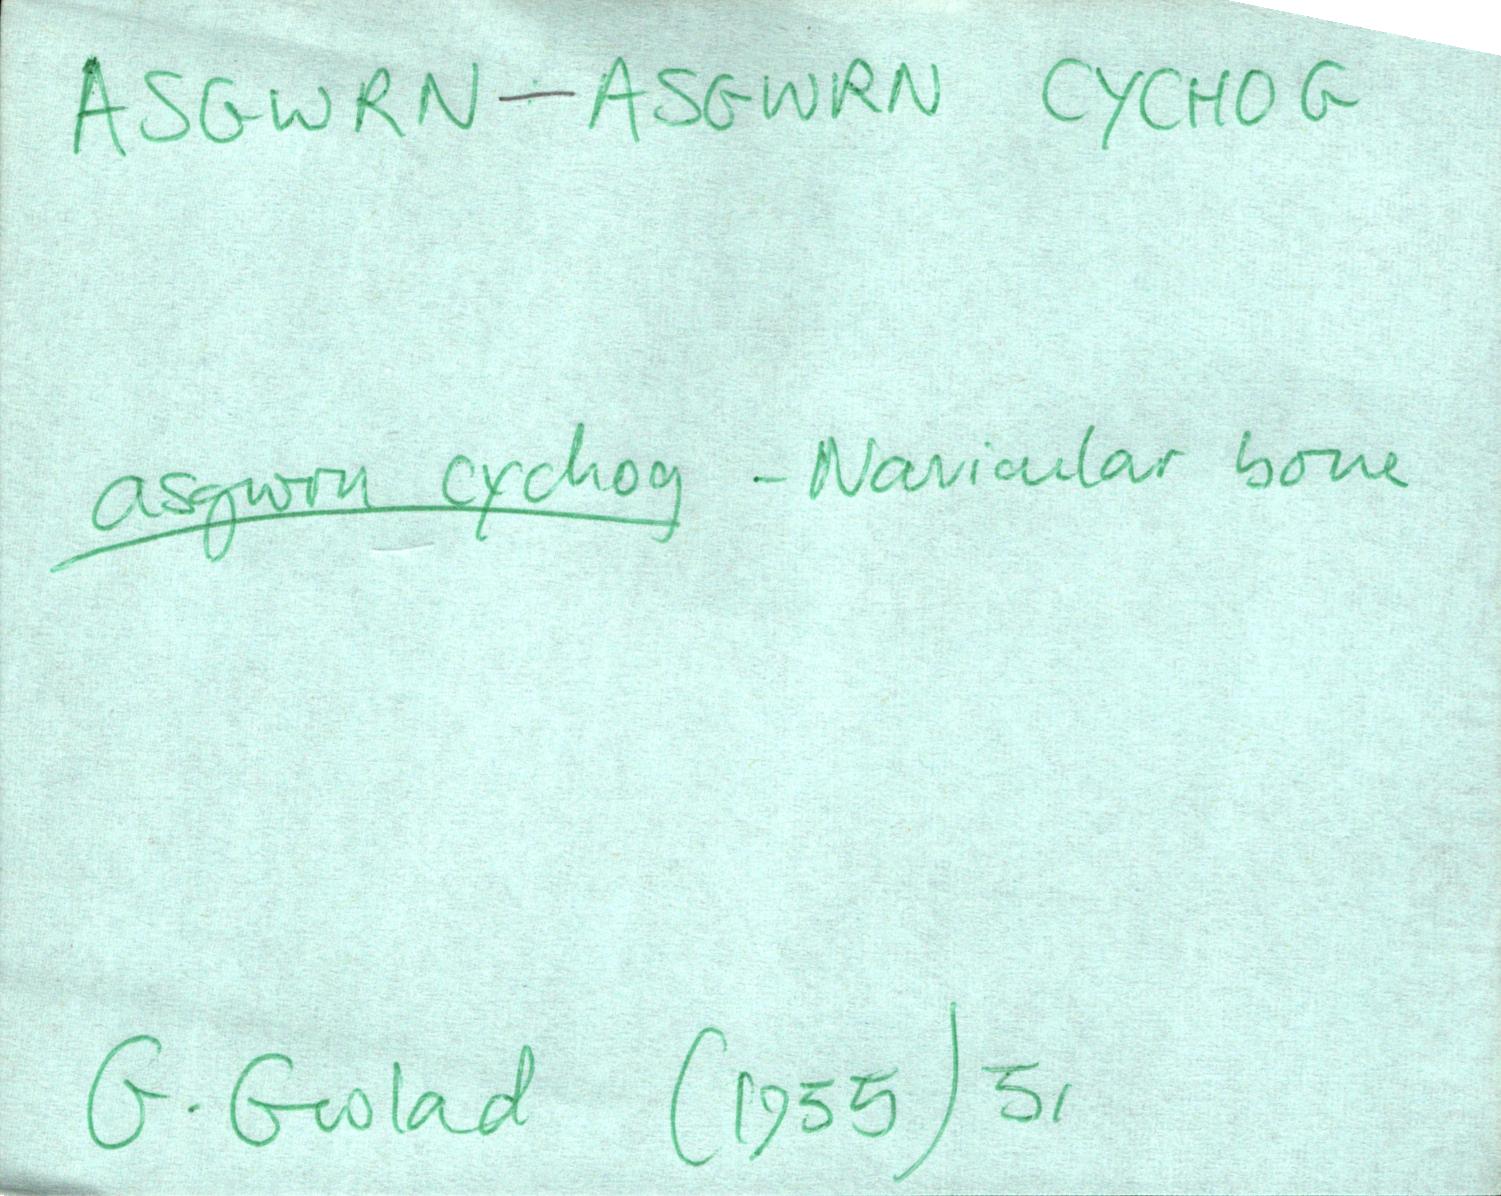 ASGWRN — ASGWRN CYCHOG
asgwrn cychog - Navicular bone
G. Gwlad (1955) 51